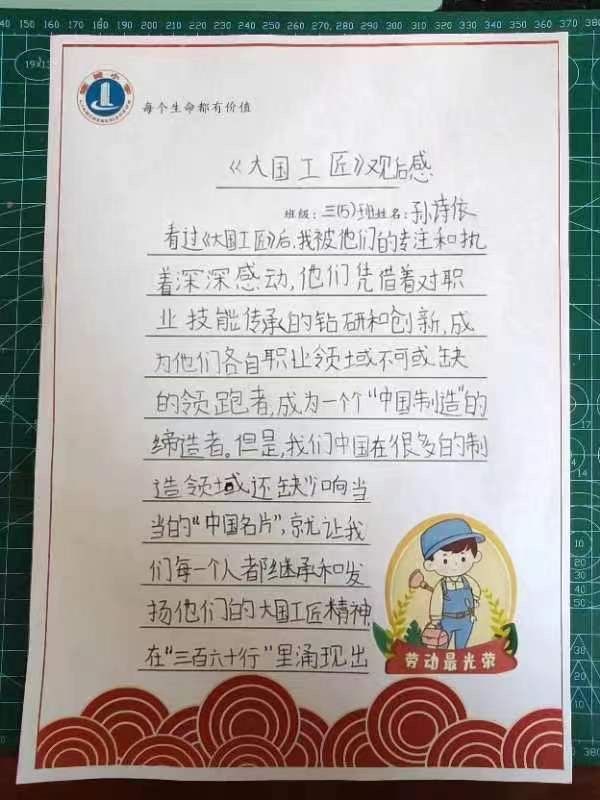 每个生命都有价值
《大国工匠》观后感
班级：三(5)班姓名：孙诗依
看过《大国工匠》后，我被他们的专注和执
着深深感动，他们凭借着对职
业技能传承的钻研和创新，成
为他们各自职业领域不可或缺
的领跑者，成为一个个“中国制造”的
缔造者。但是，我们中国在很多的制
造领域还缺少响当
当的“中国名片”，就让我
们每一个人都继承和发
扬他们的大国工匠精神，
在“三百六十行”里涌现出
劳动最光荣